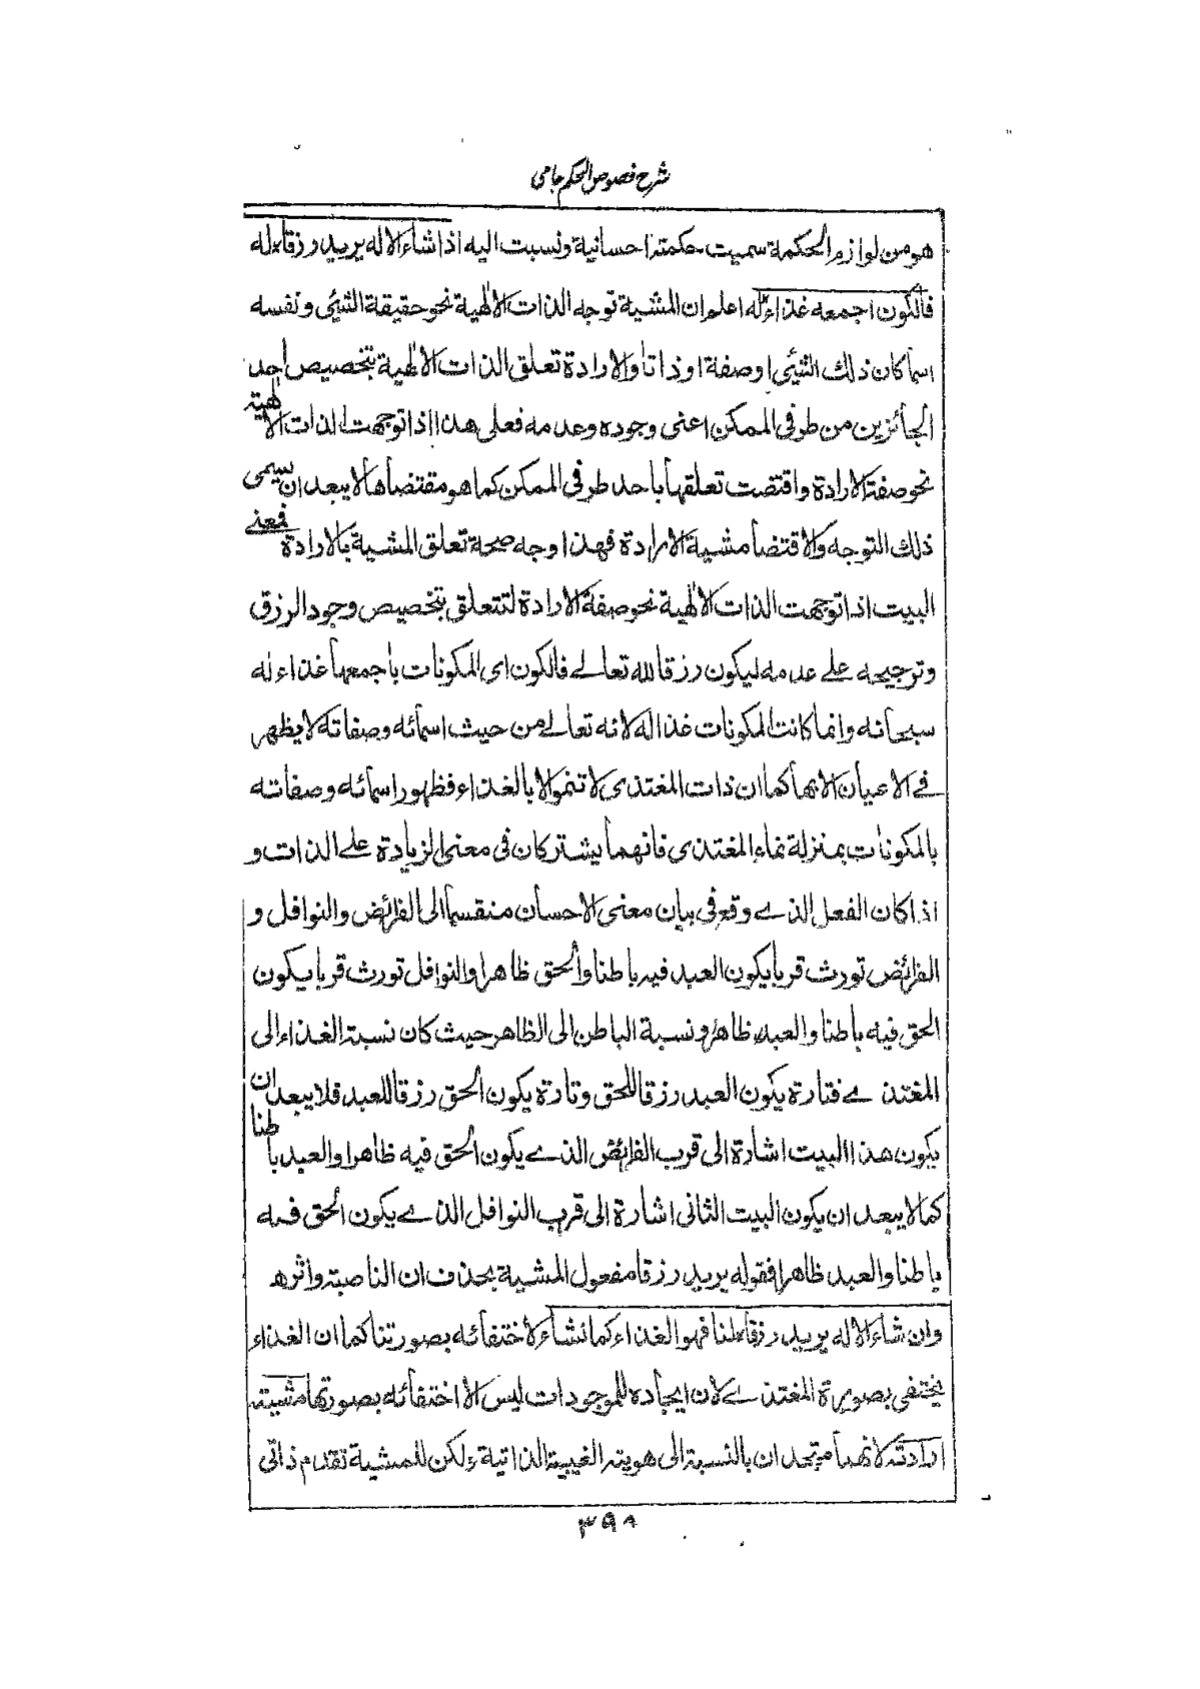 شرح فصوص الحكم جامى
هو من لوازم الحكمة سميت حكمته احسانية ونسبت اليه اذا شاء الاله يريد رزقا له
فالكون اجمعه غذاء له اعلم ان المشية توجه الذات الالٰهية نحو حقيقة الشئى ونفسه
اسما كان ذلك الشئى او صفة او ذاتا والارادة تعلق الذات الالٰهية بتخصيص احد
الجائزين من طرفى الممكن اعنى وجوده وعدمه فعلى هذا اذا توجهت الذات الالٰهية
نحو صفة الارادة واقتضت تعلقها باحد طرفى الممكن كما هو مقتضاها لا يبعد ان يسمى
ذلك التوجه والاقتضا مشية الارادة فهذا وجه صحة تعلق المشية بالارادة فمعنے
البيت اذا توجهت الذات الالٰهية نحو صفة الارادة لتتعلق بتخصيص وجود الرزق
وترجيحه علے عدمه ليكون رزقا لله تعالے فالكون اى المكونات باجمعها غذاء له
سبحانه وانما كانت المكونات غذا له لانه تعالے من حيث اسمائه وصفاته لا يظهر
فے الاعيان الا بها كما ان ذات المغتذى لا تنمو الا بالغذاء فظهور اسمائه وصفاته
بالمكونات بمنزلة نماء المغتذى فانهما يشتركان فى معنى الزيادة علے الذات و
اذا كان الفعل الذے وقع فى بيان معنى الاحسان منقسما الى الفرائض والنوافل و
الفرائض تورث قربا يكون العبد فيه باطنا والحق ظاهرا والنوافل تورث قربا يكون
الحق فيه باطنا والعبد ظاهرا ونسبة الباطن الى الظاهر حيث كان نسبة الغذاء الى
المغتذے فتارة يكون العبد رزقا للحق وتارة يكون الحق رزقا للعبد فلا يبعد ان
يكون هذا البيت اشارة الى قرب الفرائض الذے يكون الحق فيه ظاهرا والعبد باطنا
كما لا يبعد ان يكون البيت الثانى اشارة الى قرب النوافل الذے يكون الحق فيه
باطنا والعبد ظاهرا فقوله يريد رزقا مفعول المشية بحذف ان الناصبة واثره
وان شاء الاله يريد رزقا لنا فهو الغذاء كما نشاء لاختفائه بصورتنا كما ان الغذاء
يختفى بصورة المغتذے لان ايجاده للموجودات ليس الا اختفائه بصورتها مشيته
ارادته لانهما متحدان بالنسبة الى هويته الغيبية الذاتية ولكن للمشية تقدم ذاتى
٣٩٨